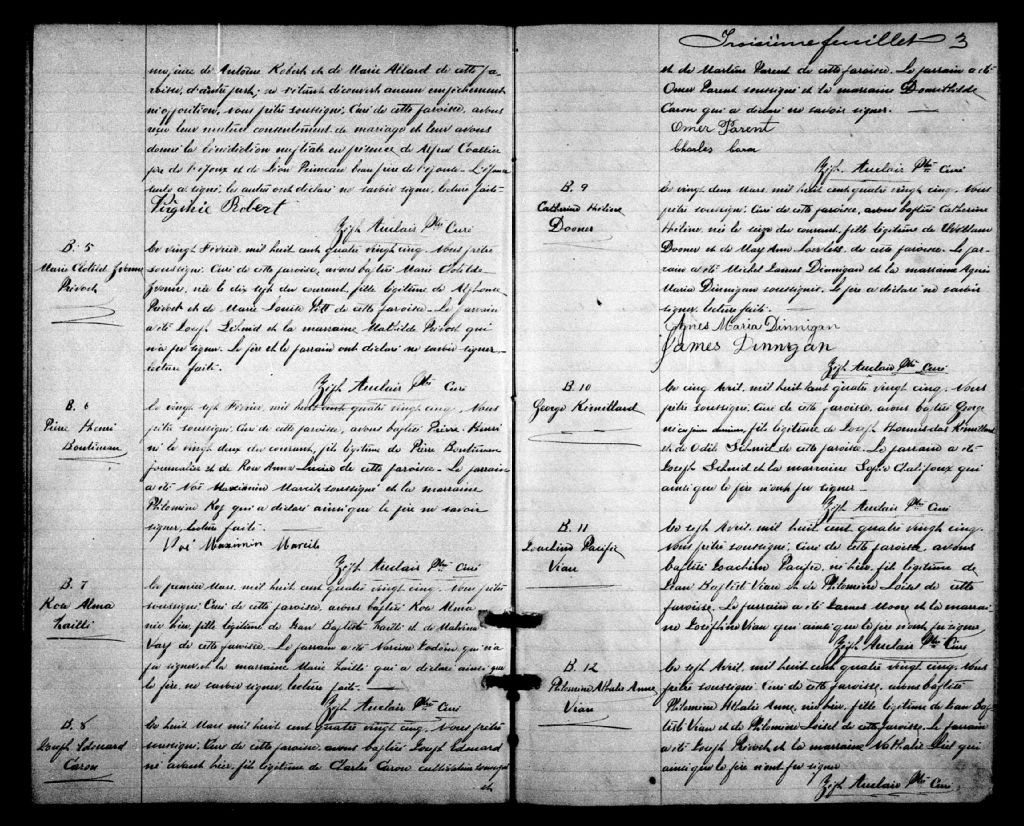 majeure de Antoine Robert et de Marie Allard de cette pa-
roisse, d'autre part; ne s'étant découvert aucun empêchement
ni opposition, nous prêtre soussigné, Curé de cette paroisse, avons
reçu leur mutuel consentement de mariage et leur avons
donné la bénédiction nuptiale en présence de Alfred Coallier
père de l'époux et de Léon Primeau beau père de l'épouse. L'épouse
seule a signé, les autres ont déclaré ne savoir signer, lecture faite.
Virginie Robert
Zéph Auclair Ptre Curé
B. 5
Marie Clotild Yvonne
Prévost
Ce vingt Février, mil huit cent quatre vingt cinq. Nous prêtre
soussigné. Curé de cette paroisse, avons baptisé Marie Clotilde
Yvonne, née le dix sept du courant, fille légitime de Alphonse
Prévost et de Marie Louise de cette paroisse. Le parrain
a été Joseph Schmid et la marraine Mathilde Prévost qui
n'a pu signer. Le père et le parrain ont déclaré ne savoir signer
lecture faite.
Zéph Auclair Ptre Curé
B. 6
Pierre Henri
Boutineau
Ce vingt sept Février, mil huit cent quatre vingt cinq. Nous
prêtre soussigné. Curé de cette paroisse, avons baptisé Pierre Henri
né le vingt deux du courant, fils légitime de Pierre Boutineau
journalier et de Rose Anna de cette paroisse. Le parrain
a été Noé Maximin Marcile soussigné et la marraine
Philomène Roy qui a déclaré ainsi que le père ne savoir
signer, lecture faite.
Noé Maximin Marcile
Zéph Auclair Ptre Curé
B. 7
Rose Alma
Ce premier Mars, mil huit cent quatre vingt cinq. Nous prêtre
soussigné. Curé de cette paroisse, avons baptisé Rose Alma
née hier, fille légitime de Jean Baptiste et de Malvina
de cette paroisse. Le parrain a été Narcisse qui n'a
pu signer et la marraine Marie qui a déclaré ainsi que
le père, ne savoir signer, lecture faite.
Zéph Auclair Ptre Curé
B. 8
Joseph Edouard
Caron
Ce huit Mars mil huit cent quatre vingt cinq. Nous prêtre
soussigné, Curé de cette paroisse, avons baptisé Joseph Edouard
né avant hier, fils légitime de Charles Caron cultivateur soussigné
et
Troisième feuillet 3
et de Martine Parent de cette paroisse. Le parrain a été
Omer Parent soussigné et la marraine Domithilde
Caron qui a déclaré ne savoir signer.
Omer Parent
Charles Caron
Zéph. Auclair Ptre Curé
B. 9
Catherine Hélène
Dooner
Ce vingt deux Mars, mil huit cent quatre vingt cinq. Nous
prêtre soussigné. Curé de cette paroisse, avons baptisé Catherine
Hélène, née le seize du courant, fille légitime de William
Dooner et de Mary Ann de cette paroisse. Le par-
rain a été Michel James Dinnigan et la marraine Agnès
Maria Dinnigan soussignés. Le père a déclaré ne savoir
signer, lecture faite.
Agnes Maria Dinnigan
James Dinnigan
Zéph Auclair Ptre Curé
B. 10
George Rémillard
Ce cinq Avril, mil huit cent quatre vingt cinq. Nous
prêtre soussigné. Curé de cette paroisse, avons baptisé George
né, fils légitime de Joseph Rémillard
et de Odile Schmid de cette paroisse. Le parrain a été
Joseph Schmid et la marraine Sophie Clatifoux qui
ainsi que le père n'ont pu signer.
Zéph Auclair Ptre Curé
B. 11
Joachim Pacifique
Viau
Ce sept Avril, mil huit cent quatre vingt cinq.
Nous prêtre soussigné, Curé de cette paroisse, avons
baptisé Joachim Pacifique, né hier, fils légitime de
Jean Baptiste Viau et de Philomène Loisel de cette
paroisse. Le parrain a été James Moore et la marrai-
ne Joséphine Viau qui ainsi que le père n'ont pu signer
Zéph Auclair Ptre Curé
B. 12
Philomène Athalie Anne
Viau
Ce sept Avril, mil huit cent quatre vingt cinq. Nous
prêtre soussigné. Curé de cette paroisse, avons baptisé
Philomène Athalie Anne, née hier, fille légitime de Jean Bap-
tiste Viau et de Philomène Loisel de cette paroisse. Le parrain
a été Joseph Prévost et la marraine Nathalie qui
ainsi que le père n'ont pu signer
Zéph Auclair Ptre Curé